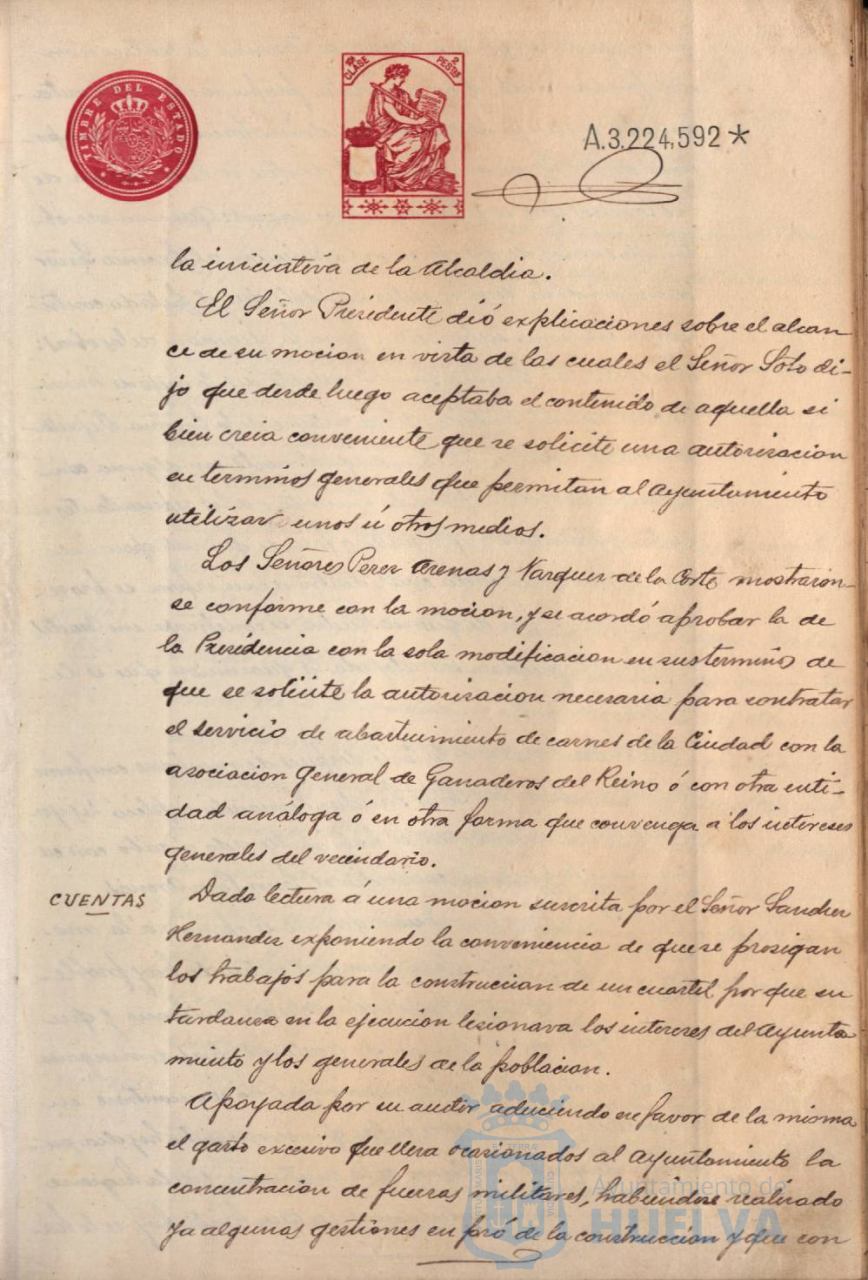 TIMBRE DEL ESTADO
10ª CLASE 2 PESTAS
A.3.224,592*
la iniciativa de la Alcaldia.
El Señor Presidente dió explicaciones sobre el alcan
ce de su mocion en vista de las cuales el Señor Soto di-
jo que desde luego aceptaba el contenido de aquella si
bien creia conveniente que se solicite una autorizacion
en terminos generales que permitan al Ayuntamiento
utilizar unos ú otros medios.
Los Señores Perez Arenas y Vazquez de la Corte mostraron-
se conforme con la mocion, y se acordó aprobar la de
la Presidencia con la sola modificacion en sus terminos de
que se solicite la autorizacion necesaria para contratar
el servicio de abastecimiento de carnes de la Ciudad con la
asociacion General de Ganaderos del Reino ó con otra enti-
dad análoga ó en otra forma que convenga a los intereses
generales del vecindario.
CUENTAS
Dado lectura á una mocion suscrita por el Señor Sanchez
Hernandez exponiendo la conveniencia de que se prosigan
los trabajos para la construccian de un cuartel por que su
tardanza en la ejecucion lesionava los intereses del Ayunta
miento y los generales de la poblacion.
Apoyada por su autor aduciendo en favor de la misma
el gasto excesivo que lleva ocasionados al Ayuntamiento la
concentracion de fuerzas militares, habiendose realizado
ya algunas gestiones en pró de la construccion y que con
Ayuntamiento de
HUELVA